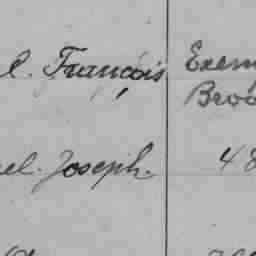 l. François Exem
Bro
el. Joseph. 48